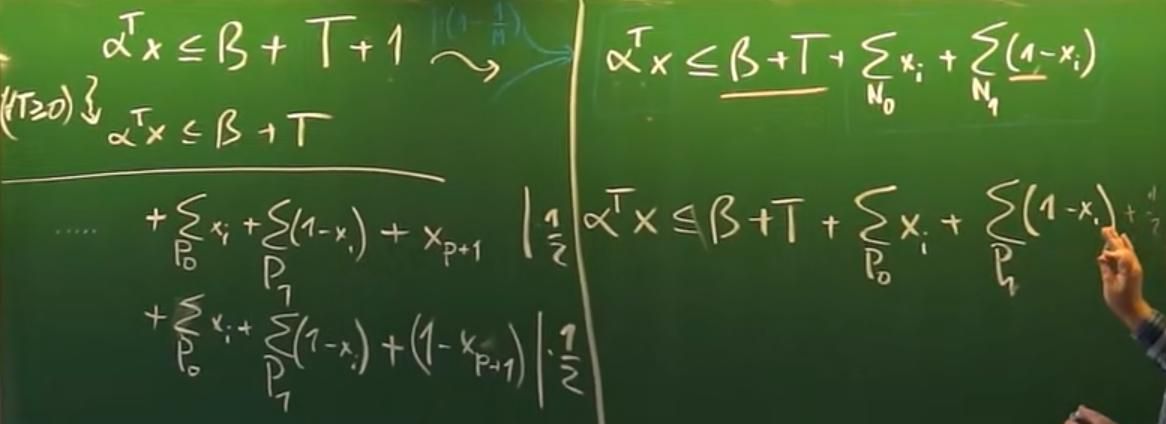 αᵀx ≤ β + T + 1 |·(1 - 1/M)
(∀T≥0)
αᵀx ≤ β + T
..... + ∑_{P₀} xᵢ + ∑_{P₁} (1-xᵢ) + x_{p+1} | 1/2
+ ∑_{P₀} xᵢ + ∑_{P₁} (1-xᵢ) + (1-x_{p+1}) | · 1/2
αᵀx ≤ β + T + ∑_{N₀} xᵢ + ∑_{N₁} (1-xᵢ)
αᵀx ≤ β + T + ∑_{P₀} xᵢ + ∑_{P₁} (1-xᵢ) + 1/2